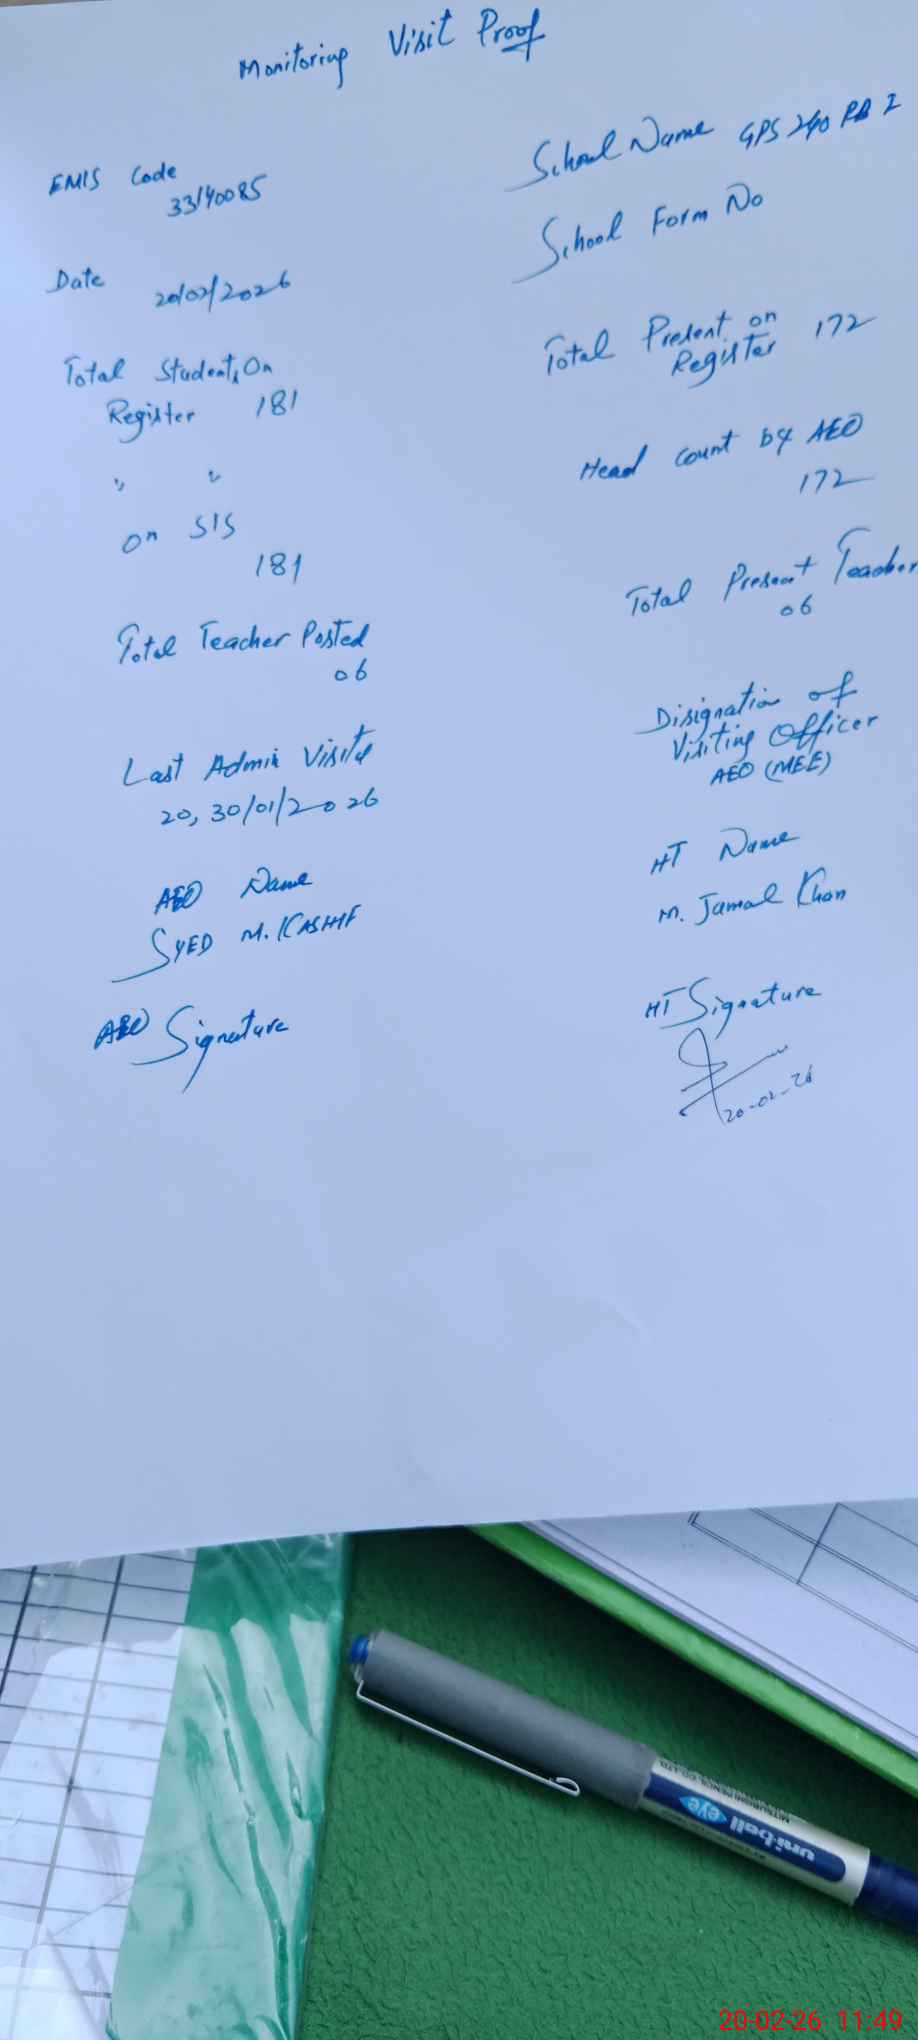 Monitoring Visit Proof
EMIS Code
33140085
School Name GPS 240 RB I
School Form No
Date
20/02/2026
Total Students On
Register 181
Total Present on
Register 172
" "
on SIS
181
Head Count by AEO
172
Total Teacher Posted
06
Total Present Teacher
06
Last Admin Visits
20, 30/01/2026
Disignation of
Visiting Officer
AEO (MEE)
AEO Name
SYED M. KASHIF
HT Name
M. Jamal Khan
AEO Signature
HT Signature
20-02-26
uni-ball eye
MITSUBISHI PENCIL CO.,LTD.
20-02-26 11:49